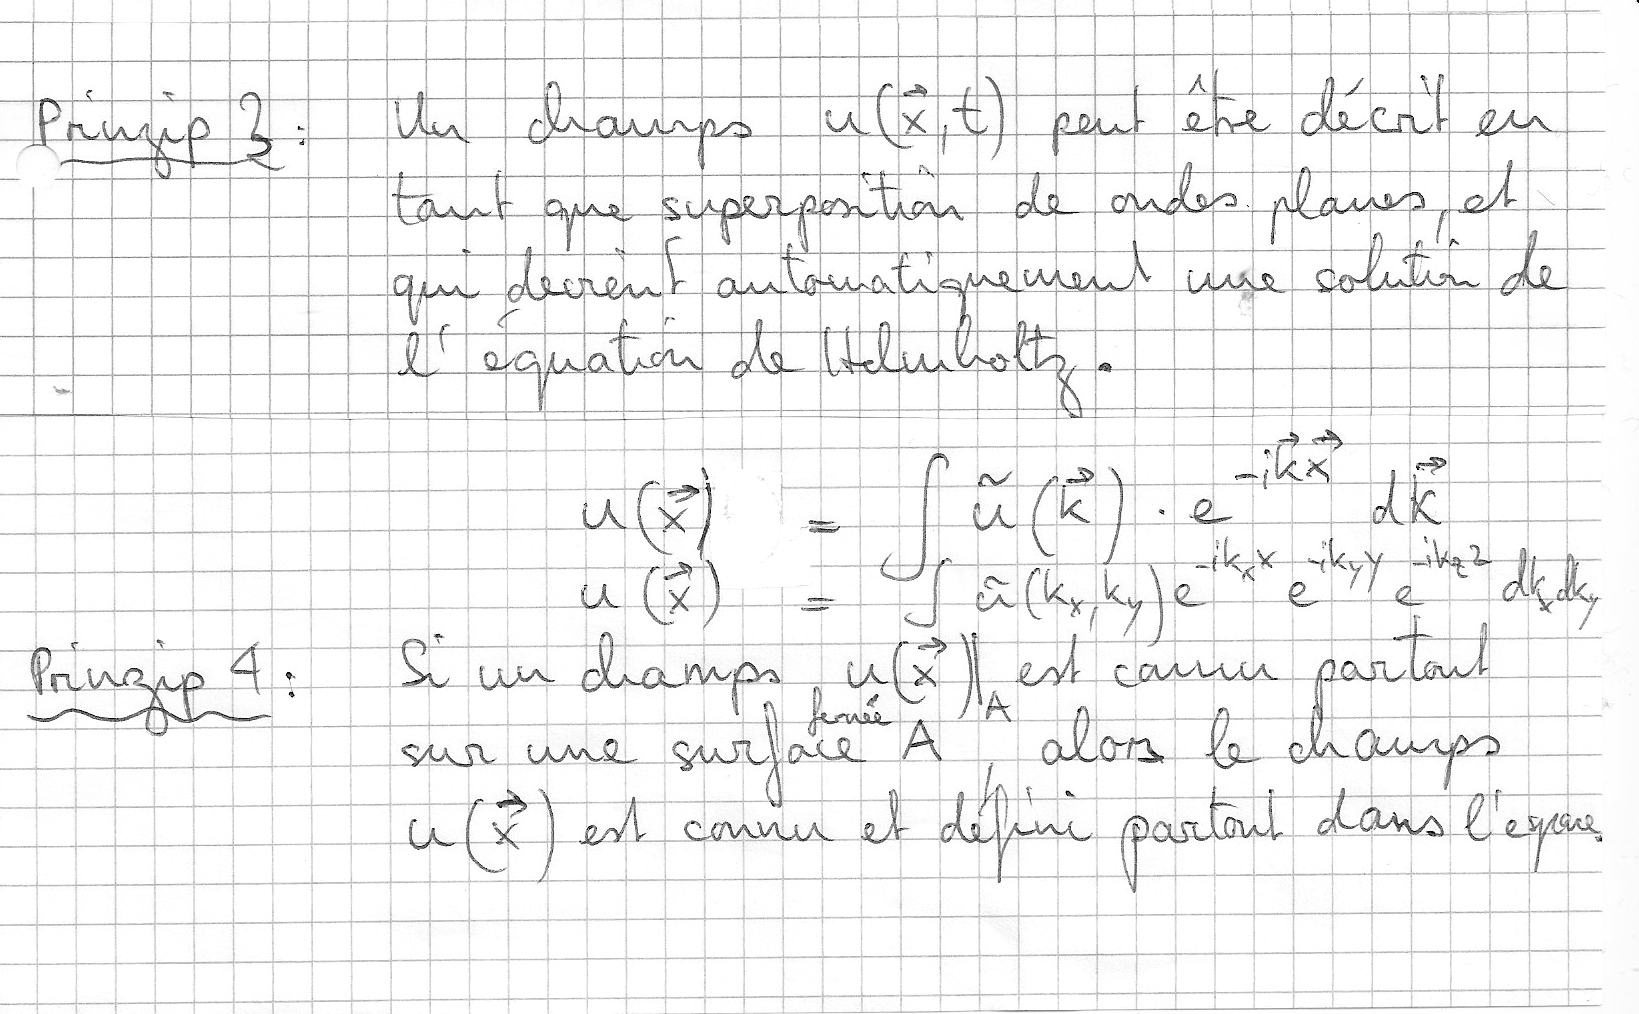 Prinzip 3: Un champs u(x⃗,t) peut être décrit en
tant que superposition de ondes planes, et
qui decrènt automatiquement une solution de
l'équation de Helmholtz.
u(x⃗) = ∫ ũ(k⃗) · e^{-ik⃗x⃗} dk⃗
u(x⃗) = ∫ ũ(kₓ,k_y) e^{-ikₓx} e^{-ik_y y} e^{-ik_z z} dkₓdk_y
Prinzip 4: Si un champs u(x⃗)|_A est connu partout
fermée
sur une surface A, alors le champs
u(x⃗) est connu et défini partout dans l'espace.